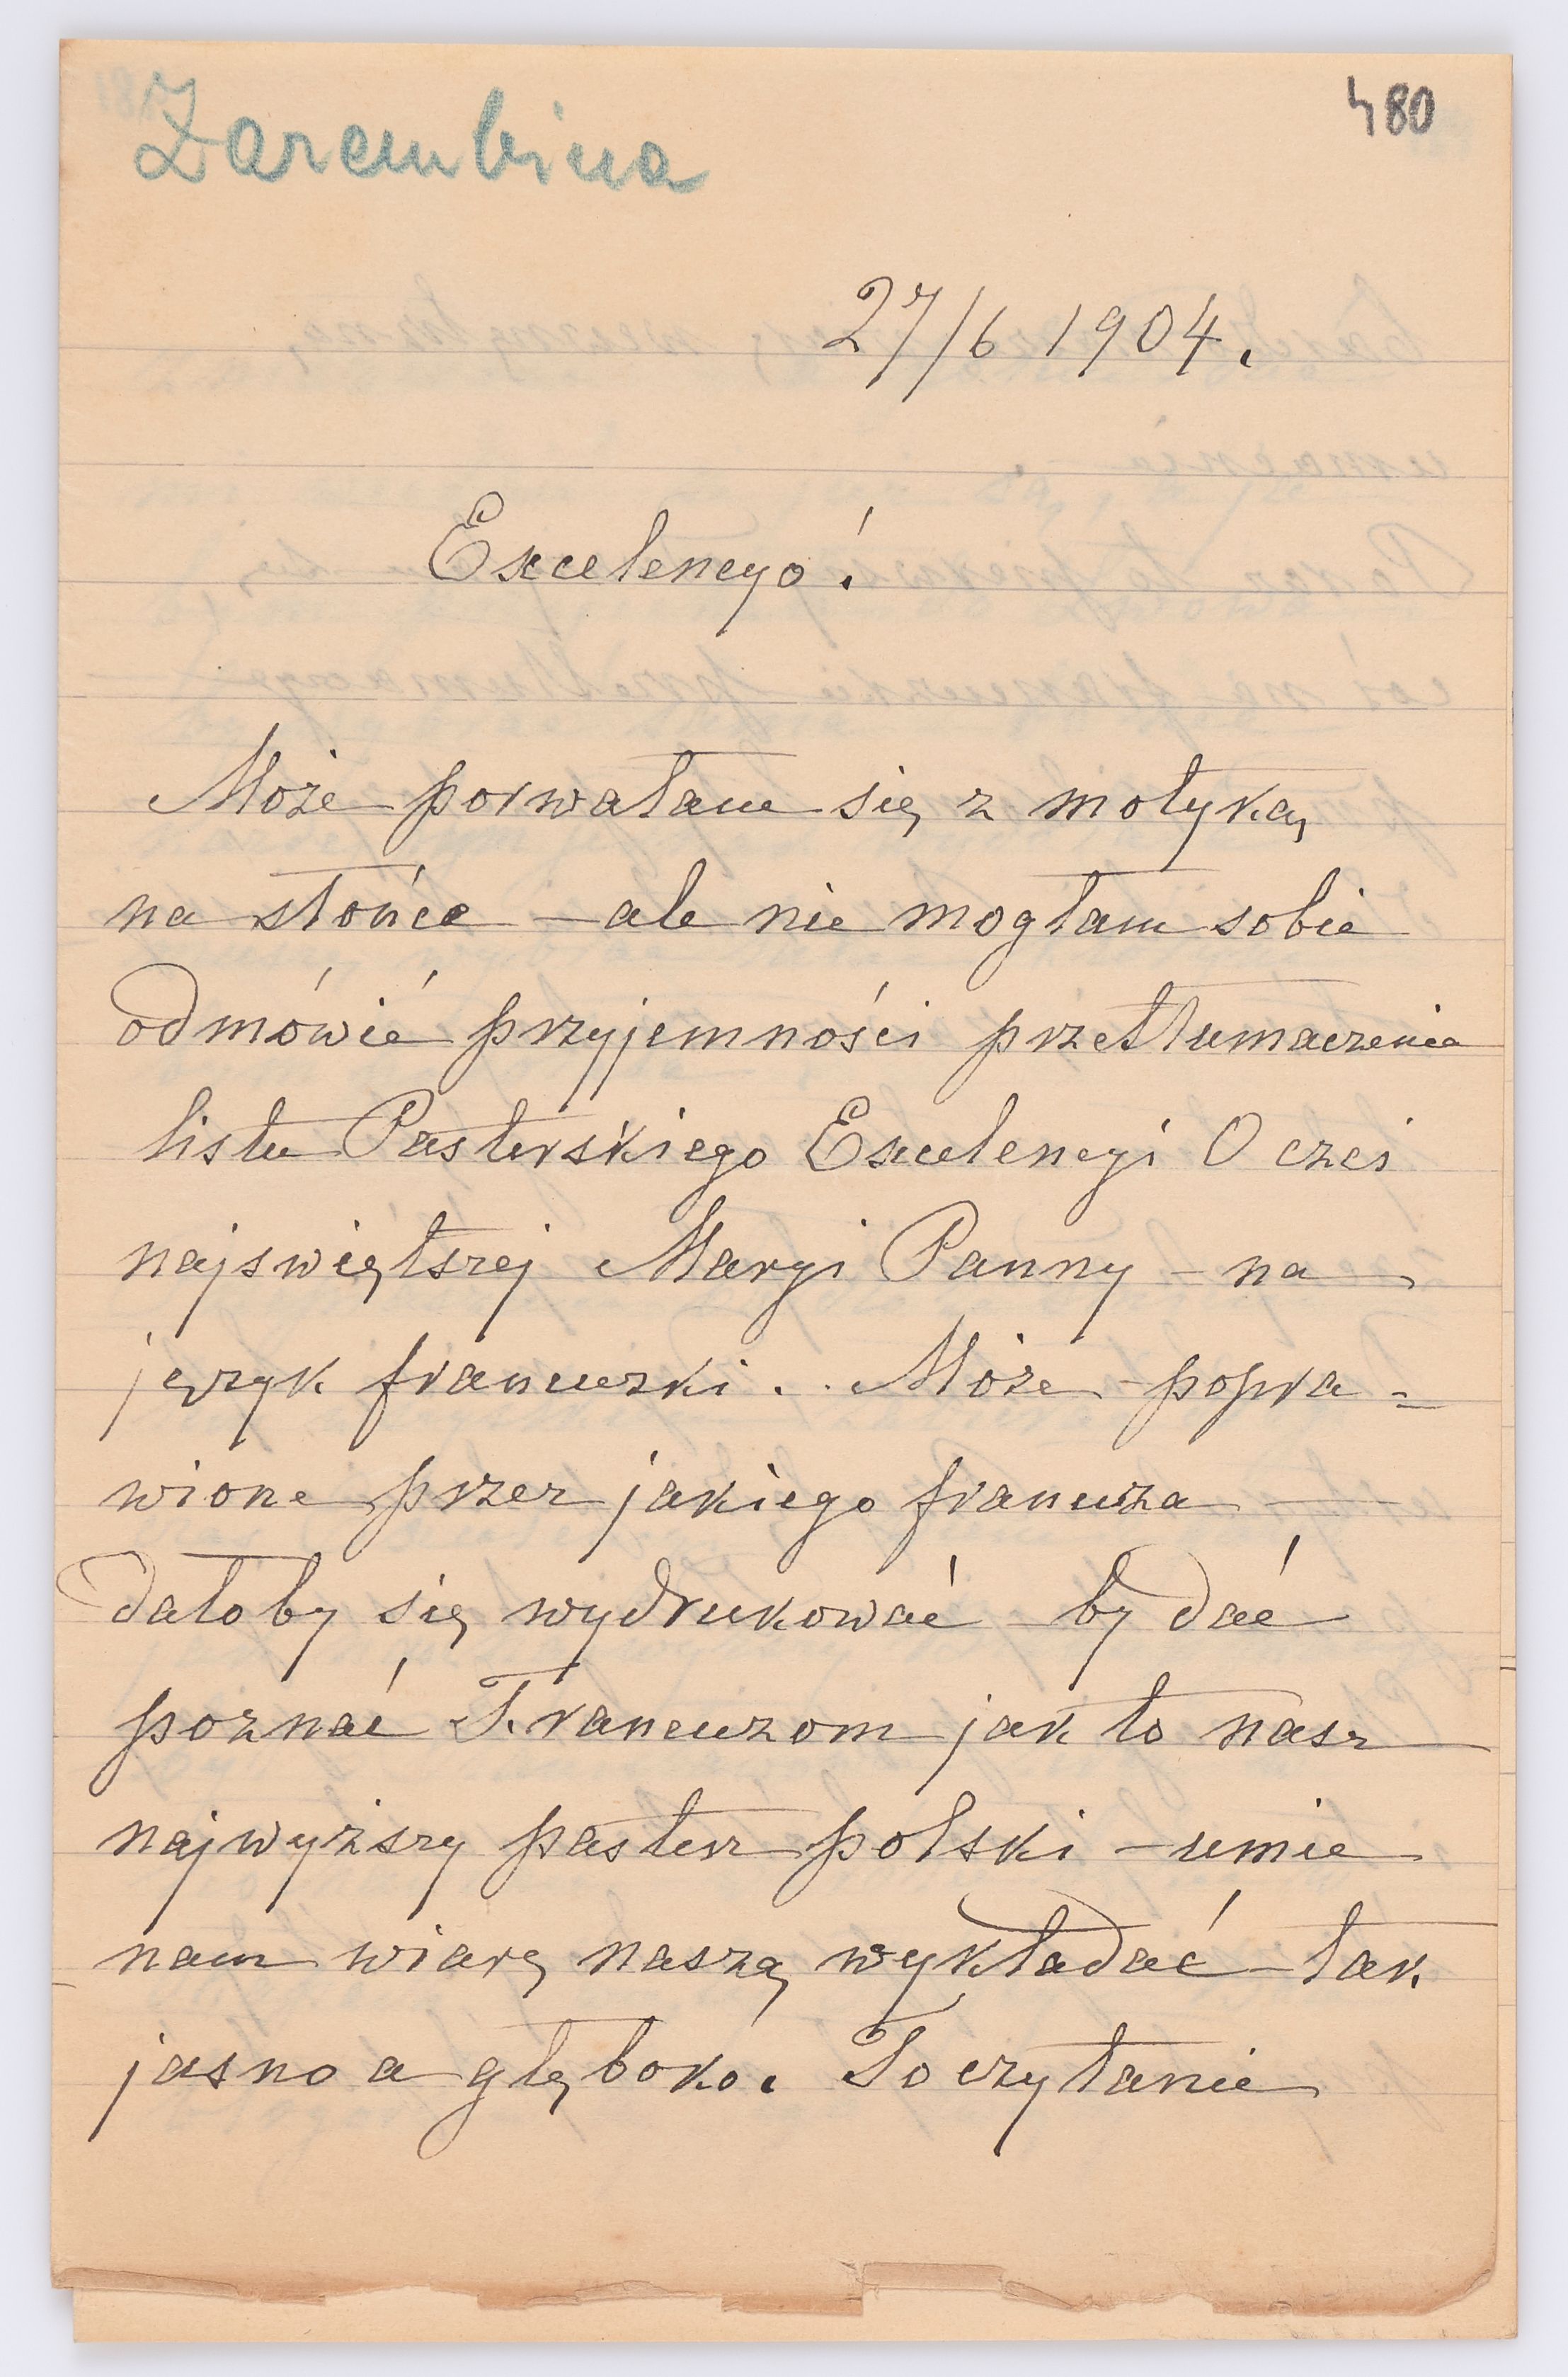 Zarembina
480
27/6 1904.
Excelencyo!
Może porwałam się z motyką
na słońce – ale nie mogłam sobie
odmówić przyjemności przetłumaczenia
listu Pasterskiego Excelencyi O czci
najswiętszej Maryi Panny – na
język francuzki... Może popra=
wione przez jakiego francuza –
dałoby się wydrukować by dać
poznać Francuzom jak to nasz
najwyższy pasterz polski – umie
nam wiarę naszą wykładać – tak
jasno a głęboko. To czytanie